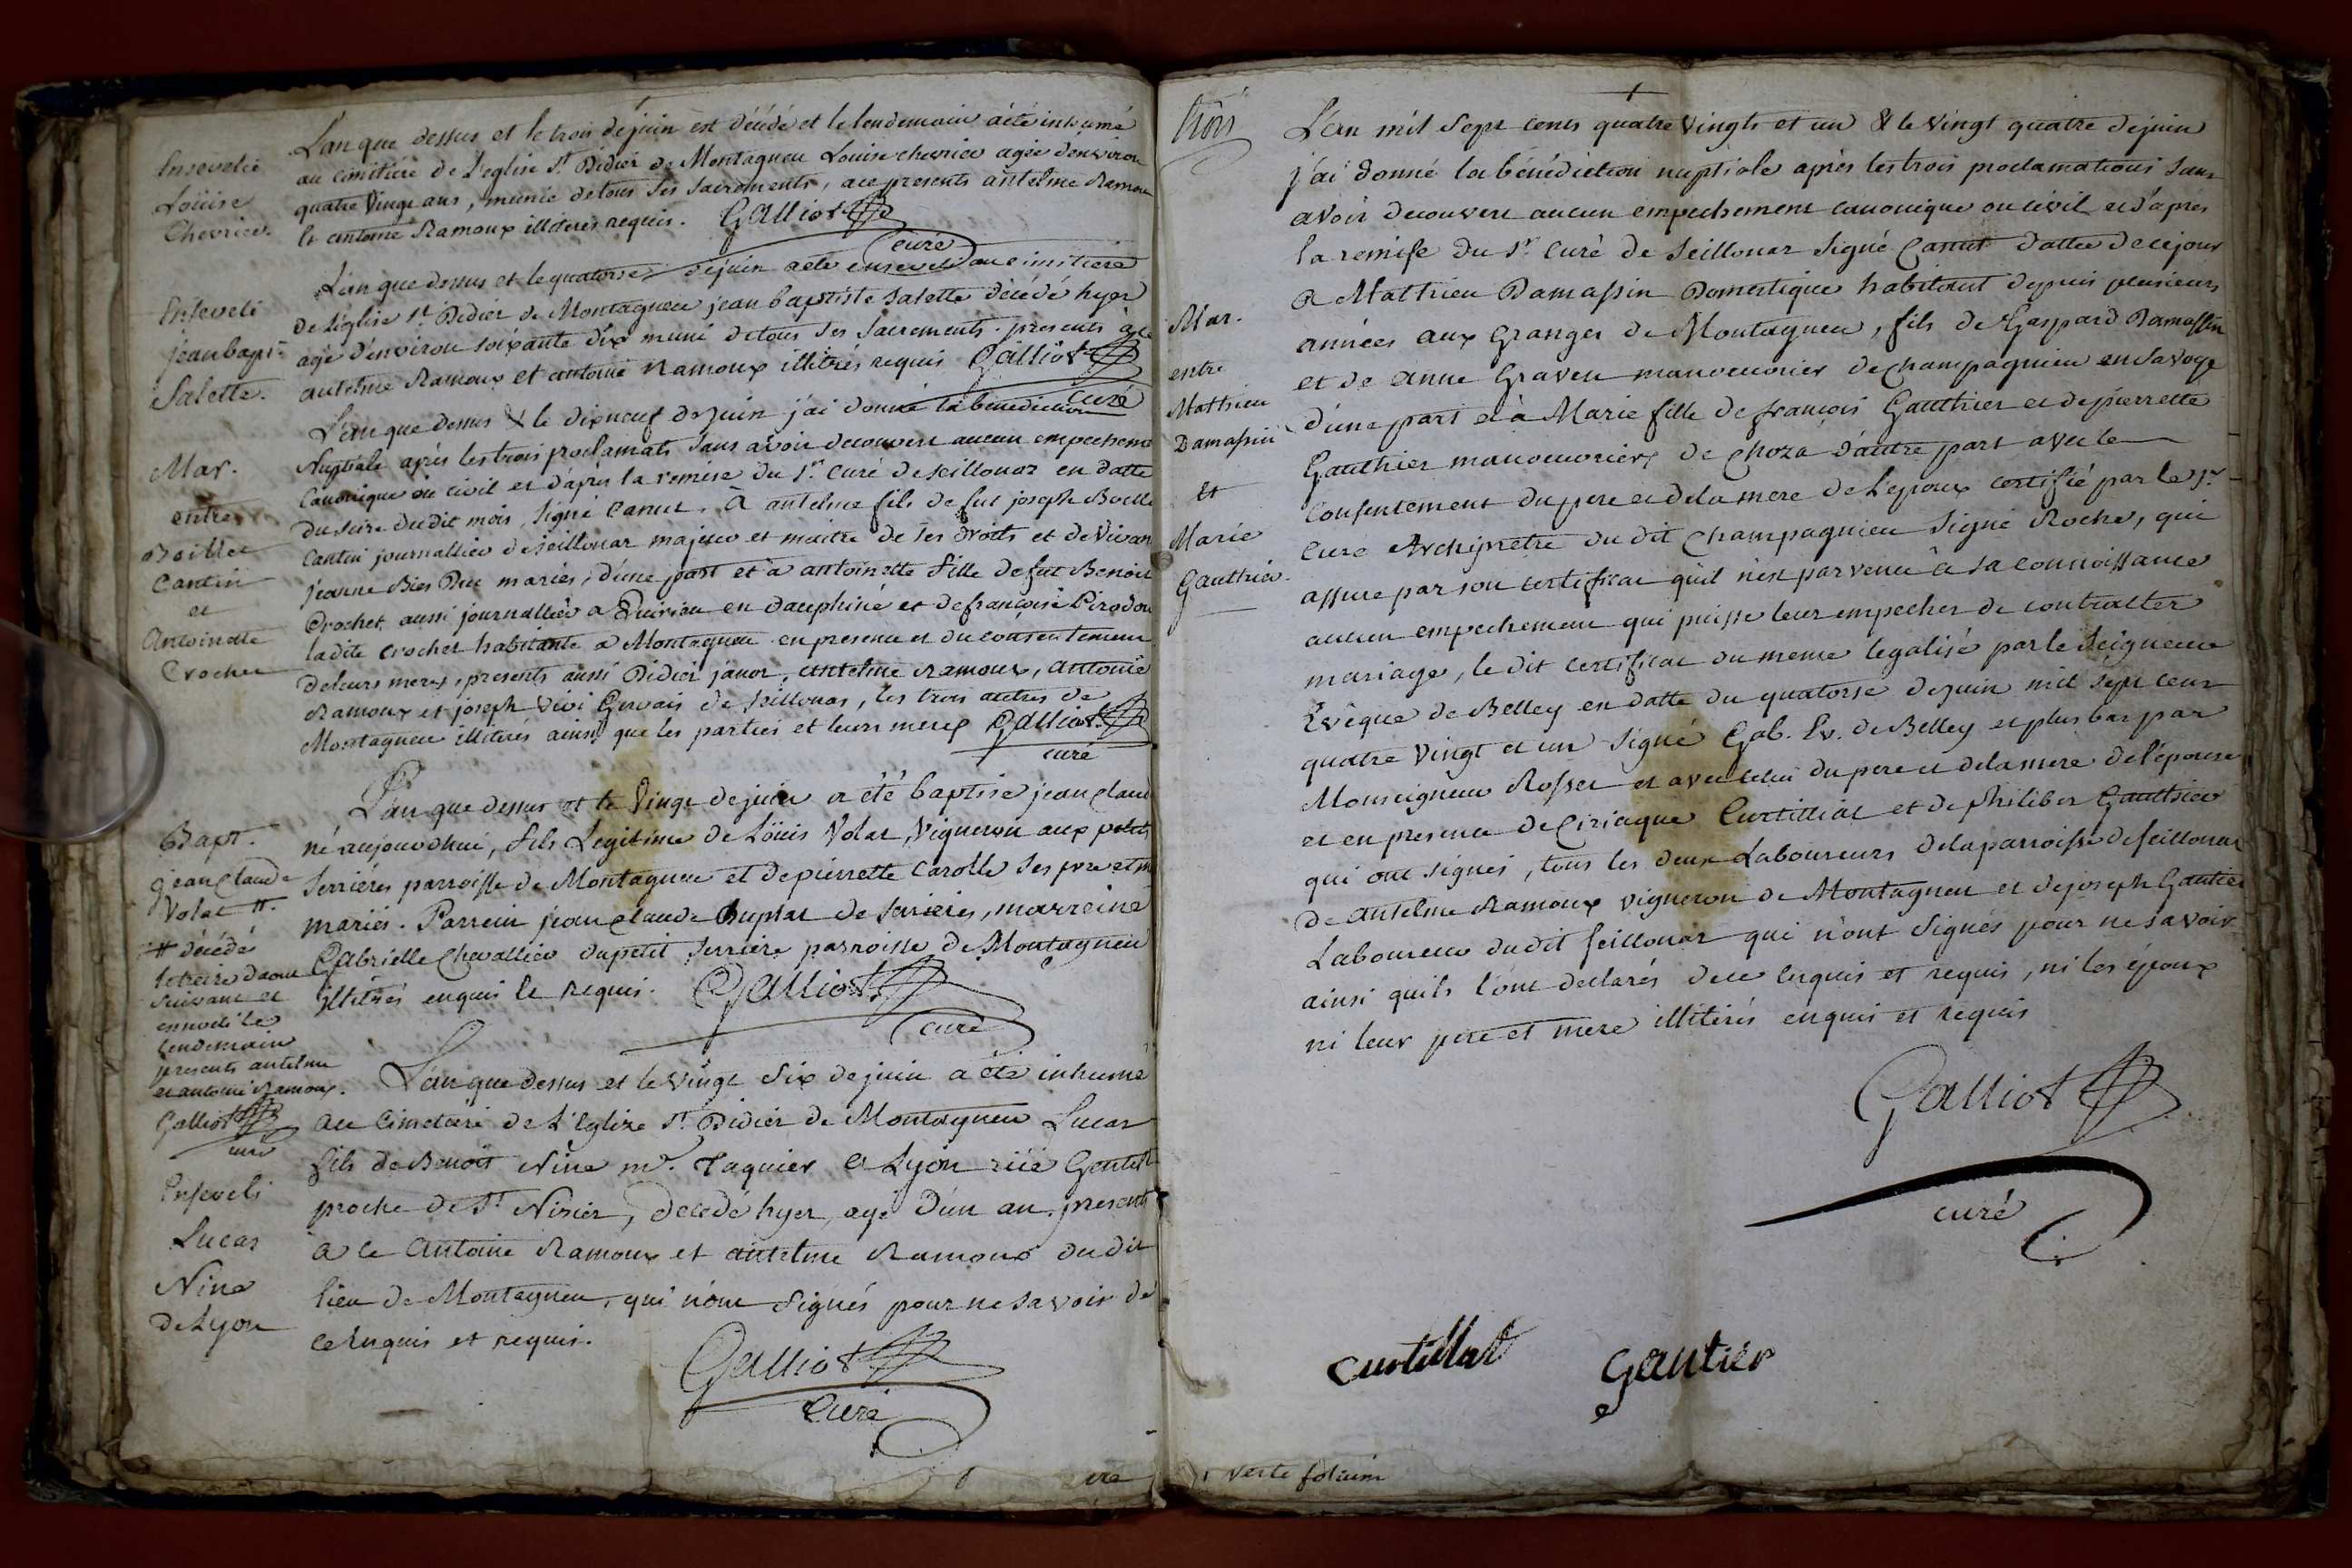 Ensevelie
Loüise
Chevrier.
L'an que dessus et le trois de juin est décédé et le lendemain a été inhumé
au cimitiere de L'eglise St. Didier de Montagneu Louise chevrier agée d'environ
quatre Vingt ans, munie de tous ses sacrements, a ce presents antelme Ramoux
et antoine Ramoux illiterés requis. Galliot
curé
Enseveli
jean bapt.
Salette.
L'an que dessus et le quatorse de juin a été enseveli au cimitiere
de L'église St. Didier de Montagneu jean baptiste salette décédé hyer
agé d'environ soixante dix muni de tous ses sacrements. presents à ce
antelme Ramoux et antoine Ramoux illitérés requis Galliot
curé
Mar.
entre
Boillet
Cantin
et
Antoinette
Crochet
L'an que dessus & le dixneuf de juin j'ai donné la bénédiction
Nuptiale après les trois proclamats sans avoir decouvert aucun empecheme
Canonique ou civil et d'après la remise du Sr. Curé de seillonaz en datte
du seise dudit mois, signé Canut. À antelme fils de fut joseph Boille
Cantin journallier de seillonaz majeur et maitre de ses droits et de Vivan
jeanne Bies Duc mariés, d'une part et à antoinette fille de fut Benoit
Crochet aussi journallier a Quirieu en dauphiné et de françoise Pirodon
ladite crochet habitante a Montagneu en presence et du consentement
de leurs meres, presents aussi Didier janot, antelme Ramoux, antoine
Ramoux et joseph Gervais de seillonas, les trois autres de
Montagneu illitérés ainsi que les parties et leurs meres Galliot
curé
Bapt.
jean Claude
Volat #.
# décédé
le treize d'aout
suivant et
enseveli le
lendemain
presents antelme
et antoine Ramoux.
Galliot
curé
L'an que dessus et le Vingt de juin a été baptisé jean claud
né aujourdhui, fils Legitime de Loüis Volat, Vigneron aux petits
Serrières parroisse de Montagneu et de pierrette Carolle ses pere et m
mariés. Parrein jean Claude Buplat de Serrieres, marreine
Gabrielle Chevallier du petit Serriere parroisse de Montagneu
illitérés enquis et requis. Galliot
curé
Enseveli
Lucas
Nine
De Lyon
L'an que dessus et le vingt six de juin a été inhumé
au Cimetiere de L'Eglize St. Didier de Montagneu Lucas
fils de Benoît Nine md. a Lyon rüe Gentil
proche de St. Nizier, decedé hyer, agé d'un an. present
a ce Antoine Ramoux et antelme Ramoux du dit
lieu de Montagneu, qui n'ont signés pour ne savoir de
ce enquis et requis.
Galliot
Curé
trois
Mar.
entre
Matthieu
Damassin
et
Marie
Gauthier.
L'an mil sept cents quatre Vingts et un & le Vingt quatre de juin
j'ai donné la bénédiction nuptiale après les trois proclamations sans
avoir decouvert aucun empechement canonique ou civil et d'après
la remise du Sr. curé de Seillonaz signé Canut dattée de ce jour
a Matthieu Damassin Domestique habitant depuis plusieurs
années aux Granges de Montagneu, fils de Gaspard Damassin
et de anne Graveu manouvrier de champagnieu en Savoye
d'une part et à Marie fille de françois Gauthier et de pierrette
Gauthier manouvriers de Choza d'autre part avec le
consentement du pere et de la mere de L'epoux certifié par le Sr.
curé Archiprêtre du dit Champagnieu signé Roche, qui
assure par son certificat qu'il n'est parvenu à sa connoissance
aucun empechement qui puisse leur empecher de contracter
mariage, le dit certificat du meme legalisé par le seigneur
Evêque de Belley en datte du quatorse de juin mil sept cent
quatre Vingt et un signé Gab. Ev. de Belley et plus bas par
Monseigneur Rosset et avec celui du pere et de la mere de l'épouse
et en presence de Ciriaque Curtilliat et de philibert Gauthier
qui ont signés, tous les deux Laboureurs de la parroisse de seillonas
de antelme Ramoux vigneron de Montagneu et de joseph Gautier
Laboureur dudit seillonaz qui n'ont signés pour ne savoir
ainsi qu'ils l'ont declarés de ce enquis et requis, ni les époux
ni leur pere et mere illitérés enquis et requis
Galliot
curé
Curtillat Gautier
verte folium